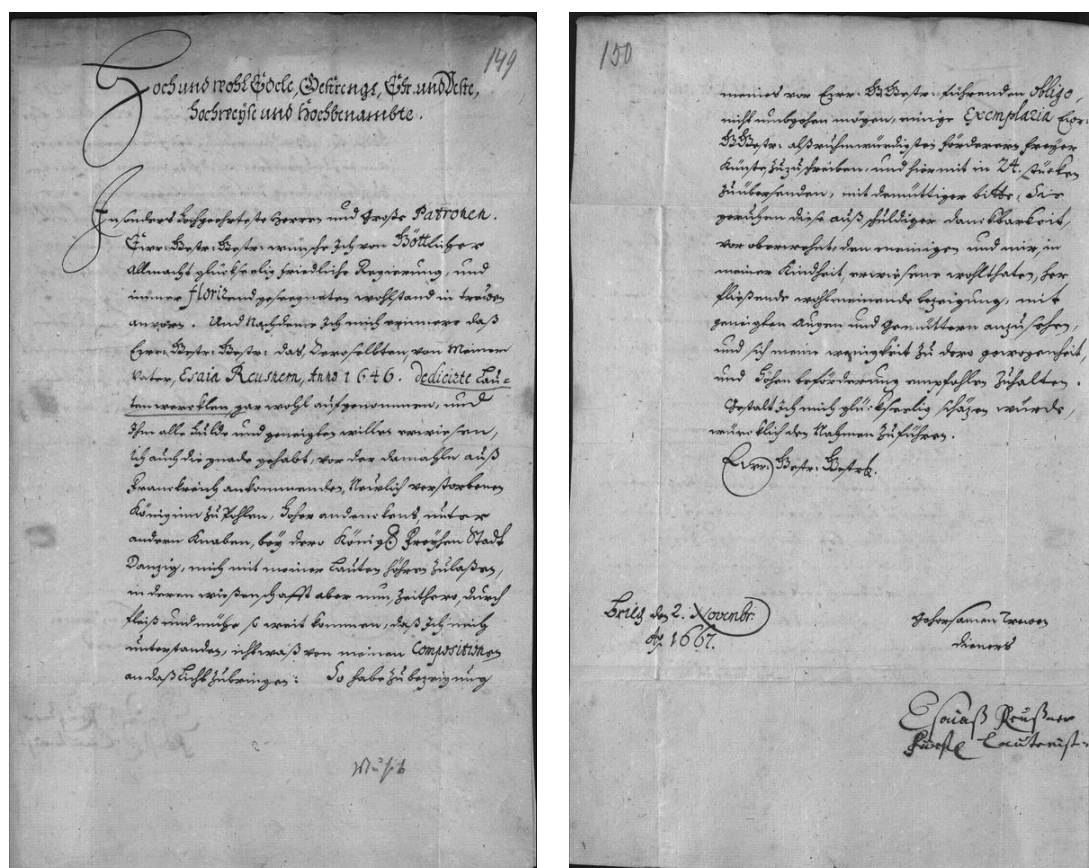 149
Hoch und wohl Edele, Gestrenge, Ehr. und Veste,
Hochweyse und Hochbenambte.
Insonders Hochgeehrteste Herren und Große Patronen.
Eurr: Gestr: Gestr: wünsche Ich von Göttlicher
Allmacht glückseelig friedliche Regierung, und
immer florirend gesegneten wohlstand in trewen
anvor. Und Nachdeme Ich mich erinnere daß
Eurr: Gestr: Gestr: das, Deroselbten, von Meinem
Vater, Esaia Reusnern, Anno 1646. dedicirte Lau=
tenwercklen gar wohl aufgenommen, und
Ihm alle Hulde und geneigten willen erwiesen,
Ich auch die gnade gehabt, vor der damahln auß
Franckreich ankommenden, Neulich verstorbenen
Königinn zu Pohlen, Hoher andenckens, unter
andern Knaben, bey dero Königl Freyhen Stadt
Danzig, mich mit meiner Lauten hören zulaßen,
in deren wießenschafft aber nun, Zeithero, durch
fleiß und mühe so weit kommen, daß Ich mich
unterstanden, ichtwaß von meinen Compositionen
an daß Licht zubringen: So habe zu bezeigung
Musik
150
meines vor Eurr: Gestr: führenden Obligo,
nicht umbgehen mögen, einige Exemplaria Eur:
Gestr: alß ruhmwürdigsten förderern freyer
Künste zuzuschreiben, und hiermit in 24. stücken
zu übersenden, mit demüttiger bitte, Sie
geruhen diese auß schuldiger danckbarkeit,
vor oberwehnte, den meinigen und mir, in
meiner Kindheit, erwiesene wohlthaten, her
fließende wohlmeinende bezeigung, mit
geneigten Augen und gemüttern anzusehen,
und sich meine wenigkeit zu dero gewogenheit,
und hohen beförderung empfohlen zuhalten.
Gestalt Ich mich glückseelig schäzen würde,
würcklich den Nahmen zuführen.
Eurr: Gestr: Gestr.
Brieg den 2. Novembr:
Ao. 1667.
Gehorsamen Trewen
dieners
Esaias Reußner
Fürstl Lautenist